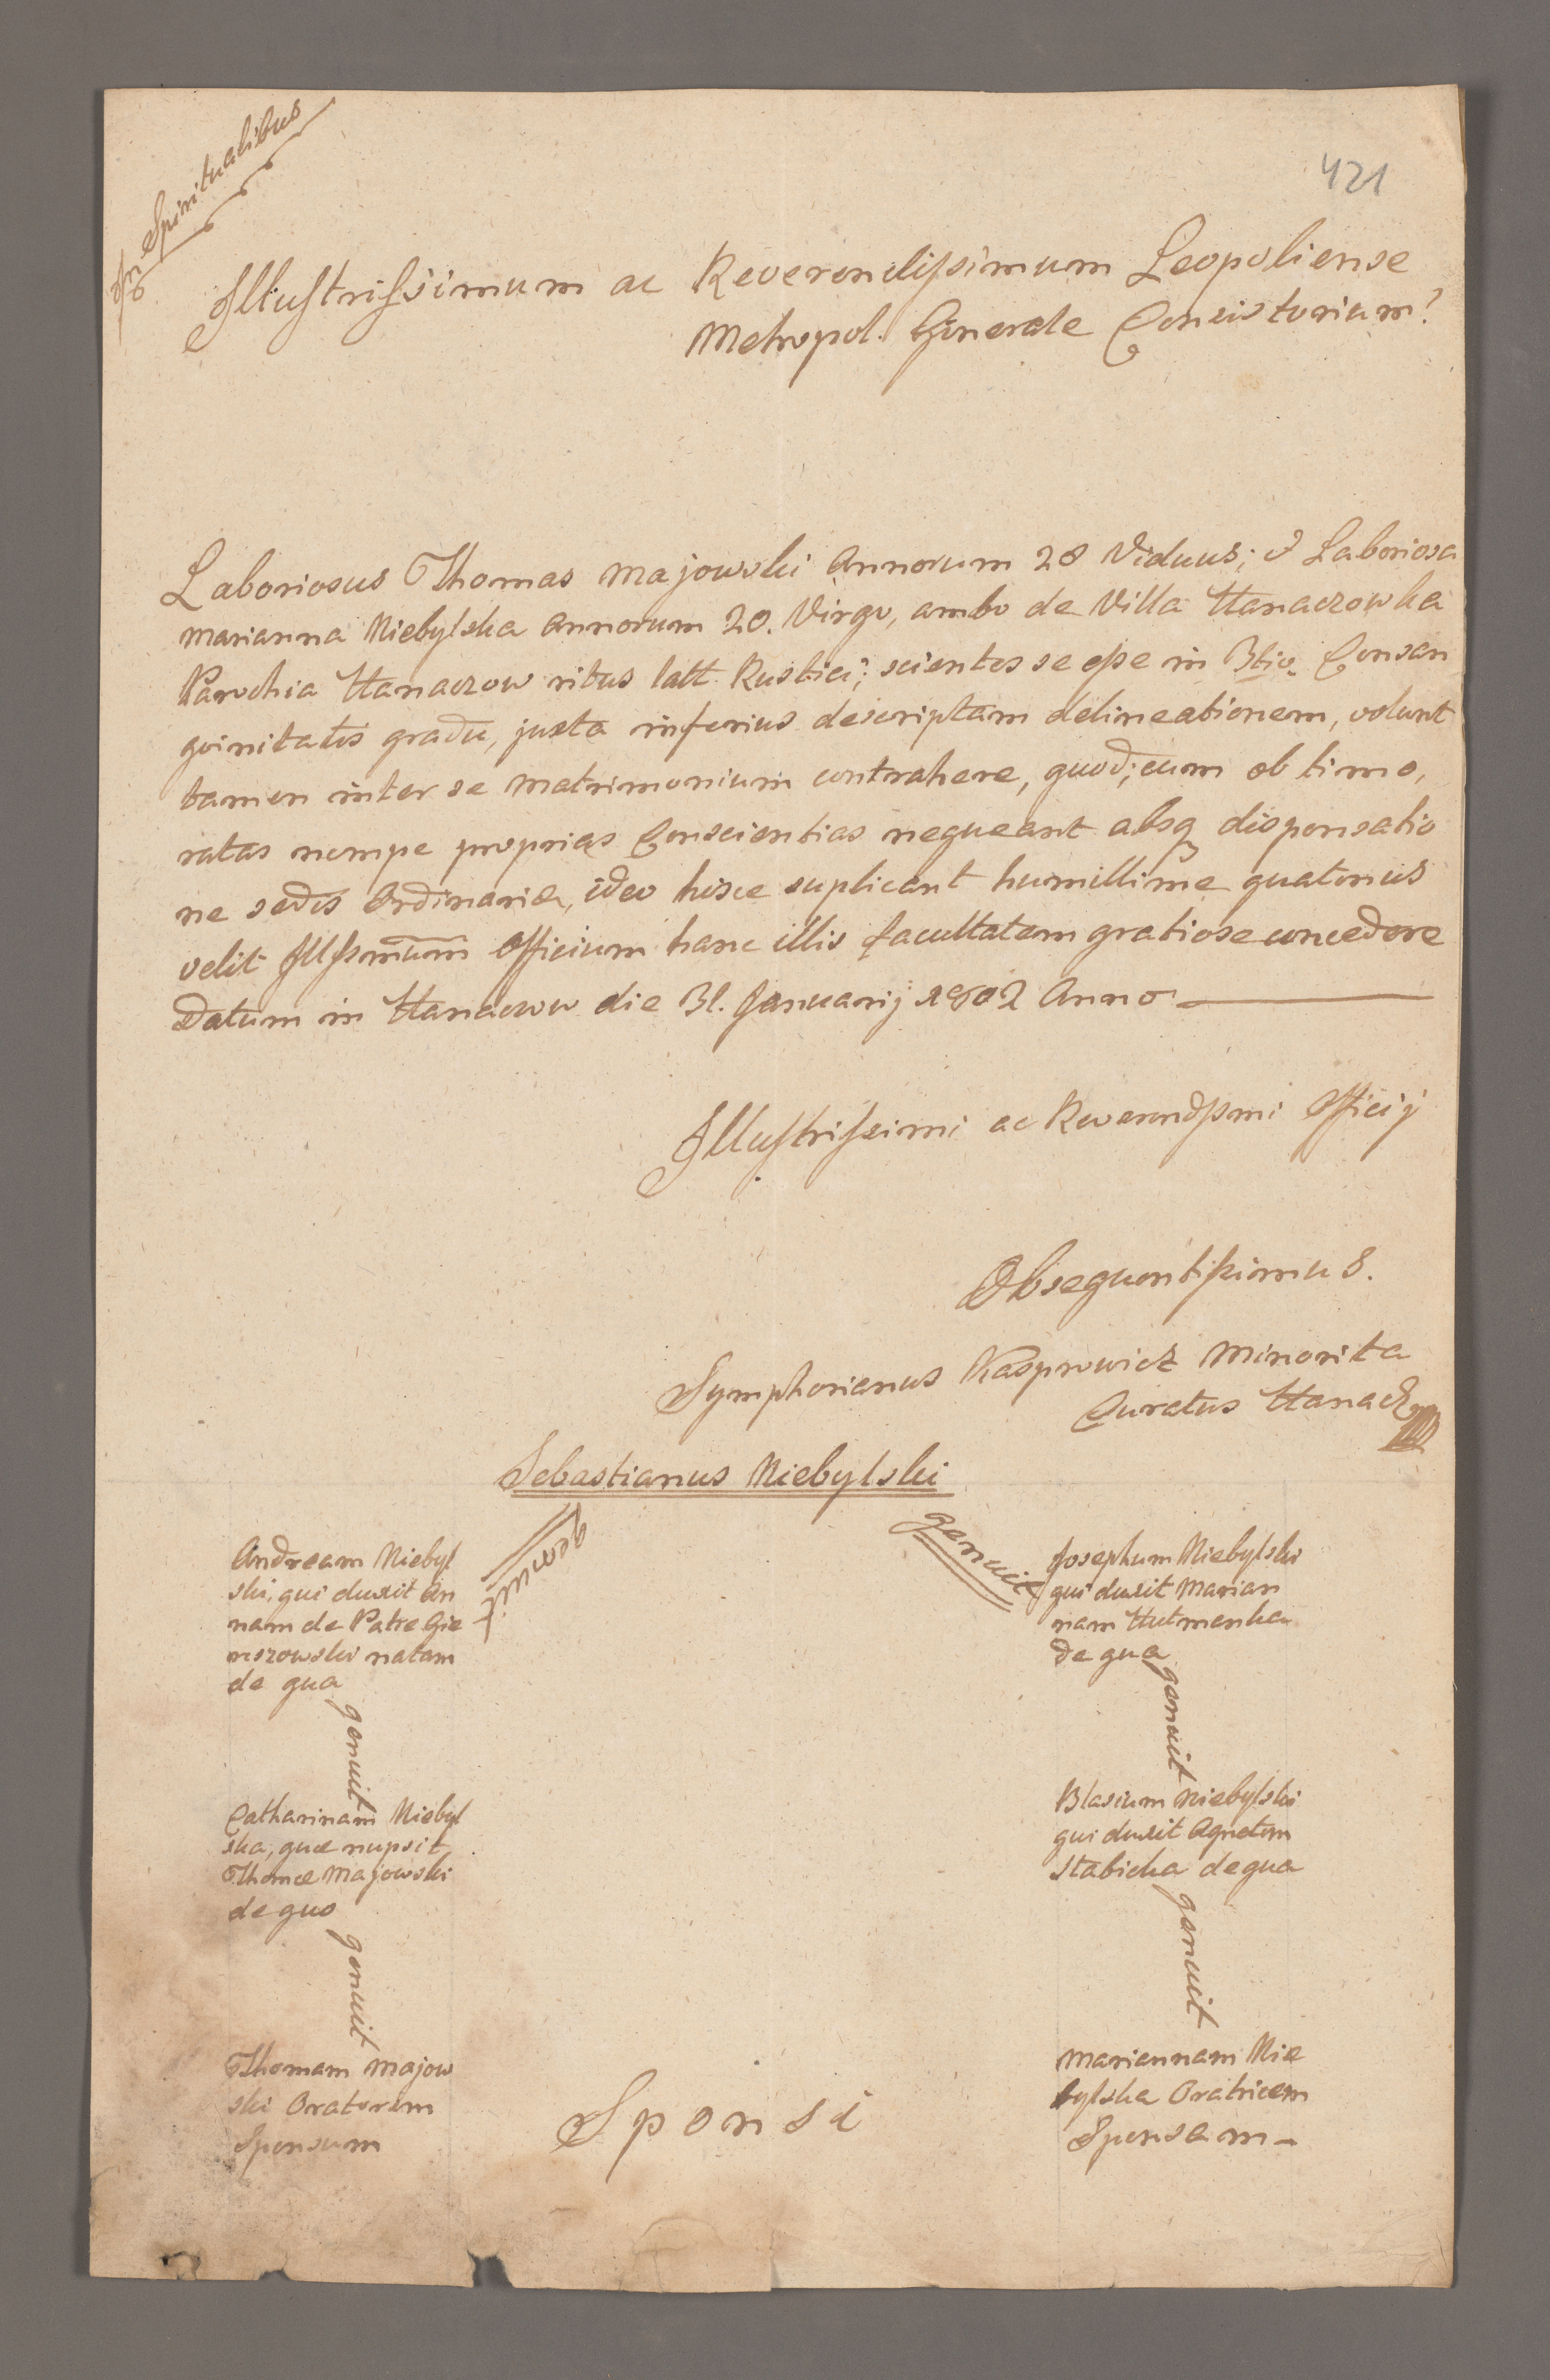 In Spiritualibus
421
Illustrissimum ac Reverendissimum Leopoliense
Metropol. Generale Consistorium!
Laboriosus Thomas Majowski Annorum 28 Viduus; & Laboriosa
Marianna Niebylska Annorum 20. Virgo, ambo de Villa Hanaczowka
Parochia Hanaczow ritus latt. Rustici; scientes se esse in 3tio. Consan
gvinitatis gradu, juxta inferius descriptam delineationem, volunt
tamen inter se Matrimonium contrahere, quod; cum ob timo,
ratas nempe proprias Conscientias nequeant absq dispensatio
ne sedis Ordinariæ, ideo hisce suplicant humillime quatenus
velit Illssmum Officium hanc illis facultatem gratiose concedere
Datum in Hanacow die 31. Januarij 1802 Anno
Illustrissimi ac Reverendssmi Officij
Obsequentissimus.
Symphorianus Kasprowicz Minorita
Curatus Hanacz
Sebastianus Niebylski
genuit
genuit
Andream Niebyl
ski, qui duxit An
nam de Patre Gie
mszowski natam
de qua
genuit
Catharinam Niebyl
ska, quæ nupsit
Thomæ Majowski
de quo
genuit
Thomam Majow
ski Oratorem
Sponsum
Josephum Niebylski
qui duxit Marian
nam Hutmanka
de qua
genuit
Blasium Niebylski
qui duxit Agnetem
Stabicka de qua
genuit
Mariannam Nie
bylska Oratricem
Sponsam
Sponsi